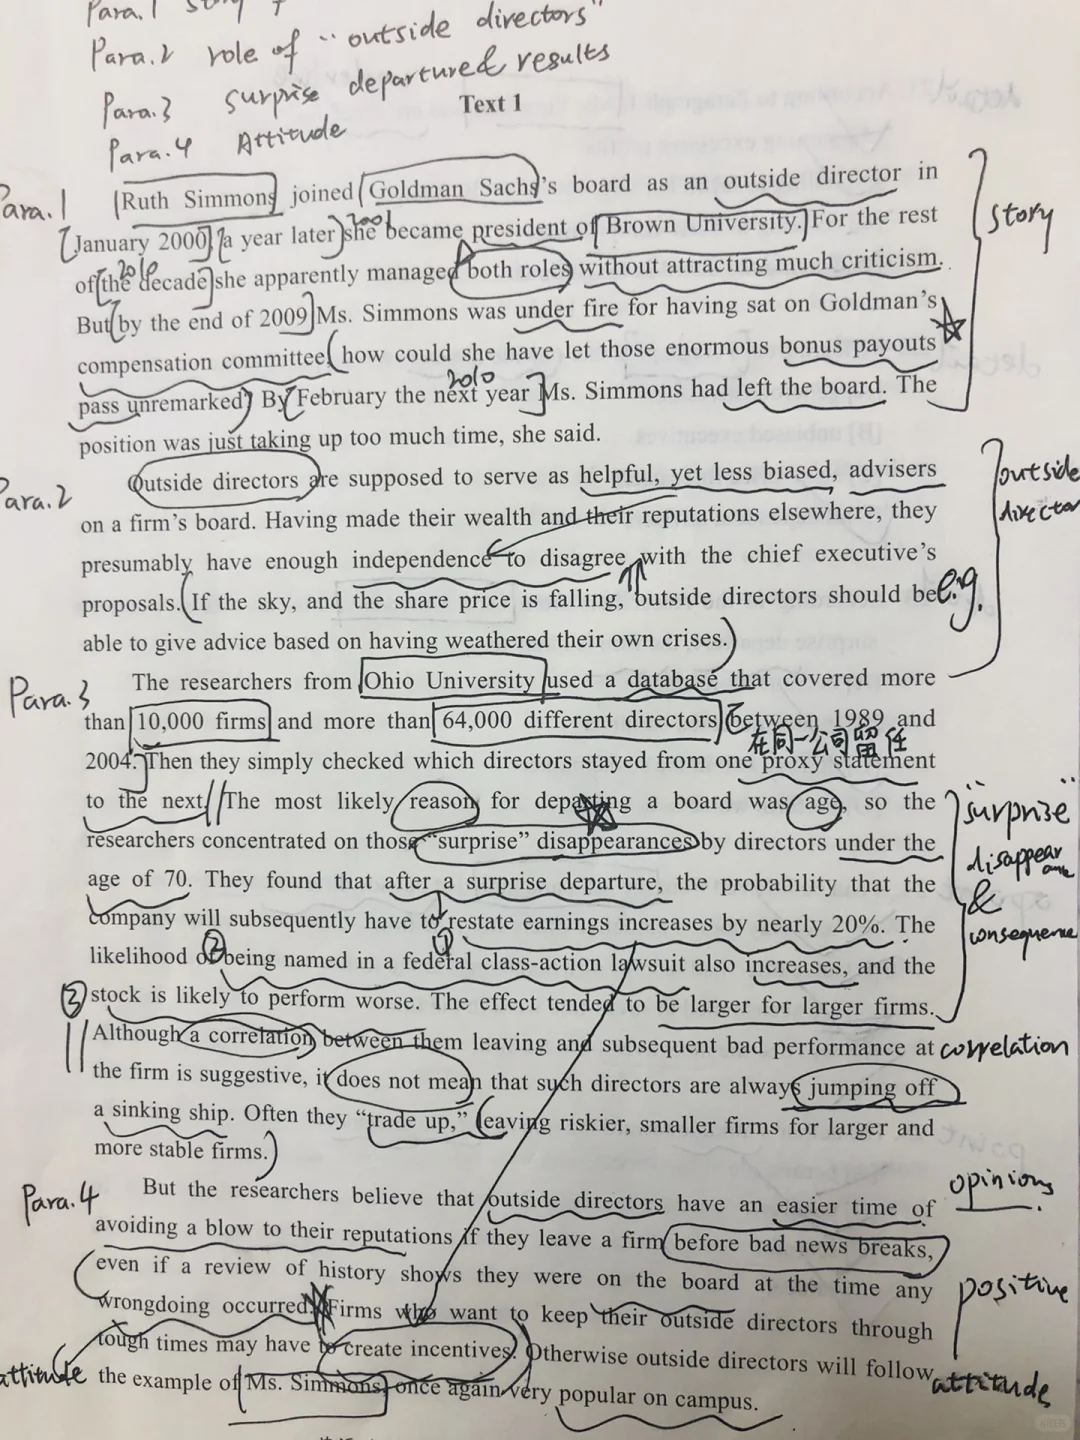 Para.1 story
Para.2 role of "outside directors"
Para.3 surprise departure & results
Para.4 Attitude
Text 1
Para.1 Ruth Simmons joined Goldman Sachs's board as an outside director in
January 2000; a year later she became president of Brown University. For the rest
2001
of the decade she apparently managed both roles without attracting much criticism.
2010
story
But by the end of 2009 Ms. Simmons was under fire for having sat on Goldman's
compensation committee; how could she have let those enormous bonus payouts
pass unremarked? By February the next year Ms. Simmons had left the board. The
2010
position was just taking up too much time, she said.
Para.2 Outside directors are supposed to serve as helpful, yet less biased, advisers
outside director
on a firm's board. Having made their wealth and their reputations elsewhere, they
presumably have enough independence to disagree with the chief executive's
proposals. If the sky, and the share price is falling, outside directors should be
e.g.
able to give advice based on having weathered their own crises.
Para.3 The researchers from Ohio University used a database that covered more
than 10,000 firms and more than 64,000 different directors between 1989 and
在同一公司留任
2004. Then they simply checked which directors stayed from one proxy statement
to the next. The most likely reason for departing a board was age, so the
researchers concentrated on those "surprise" disappearances by directors under the
"surprise"
disappearance
&
consequence
age of 70. They found that after a surprise departure, the probability that the
company will subsequently have to restate earnings increases by nearly 20%. The
①
likelihood of being named in a federal class-action lawsuit also increases, and the
②
③ stock is likely to perform worse. The effect tended to be larger for larger firms.
Although a correlation between them leaving and subsequent bad performance at
correlation
the firm is suggestive, it does not mean that such directors are always jumping off
a sinking ship. Often they "trade up," leaving riskier, smaller firms for larger and
more stable firms.
Para.4 But the researchers believe that outside directors have an easier time of
opinions
avoiding a blow to their reputations if they leave a firm before bad news breaks,
even if a review of history shows they were on the board at the time any
wrongdoing occurred. Firms who want to keep their outside directors through
positive
tough times may have to create incentives. Otherwise outside directors will follow
attitude
attitude the example of Ms. Simmons, once again very popular on campus.